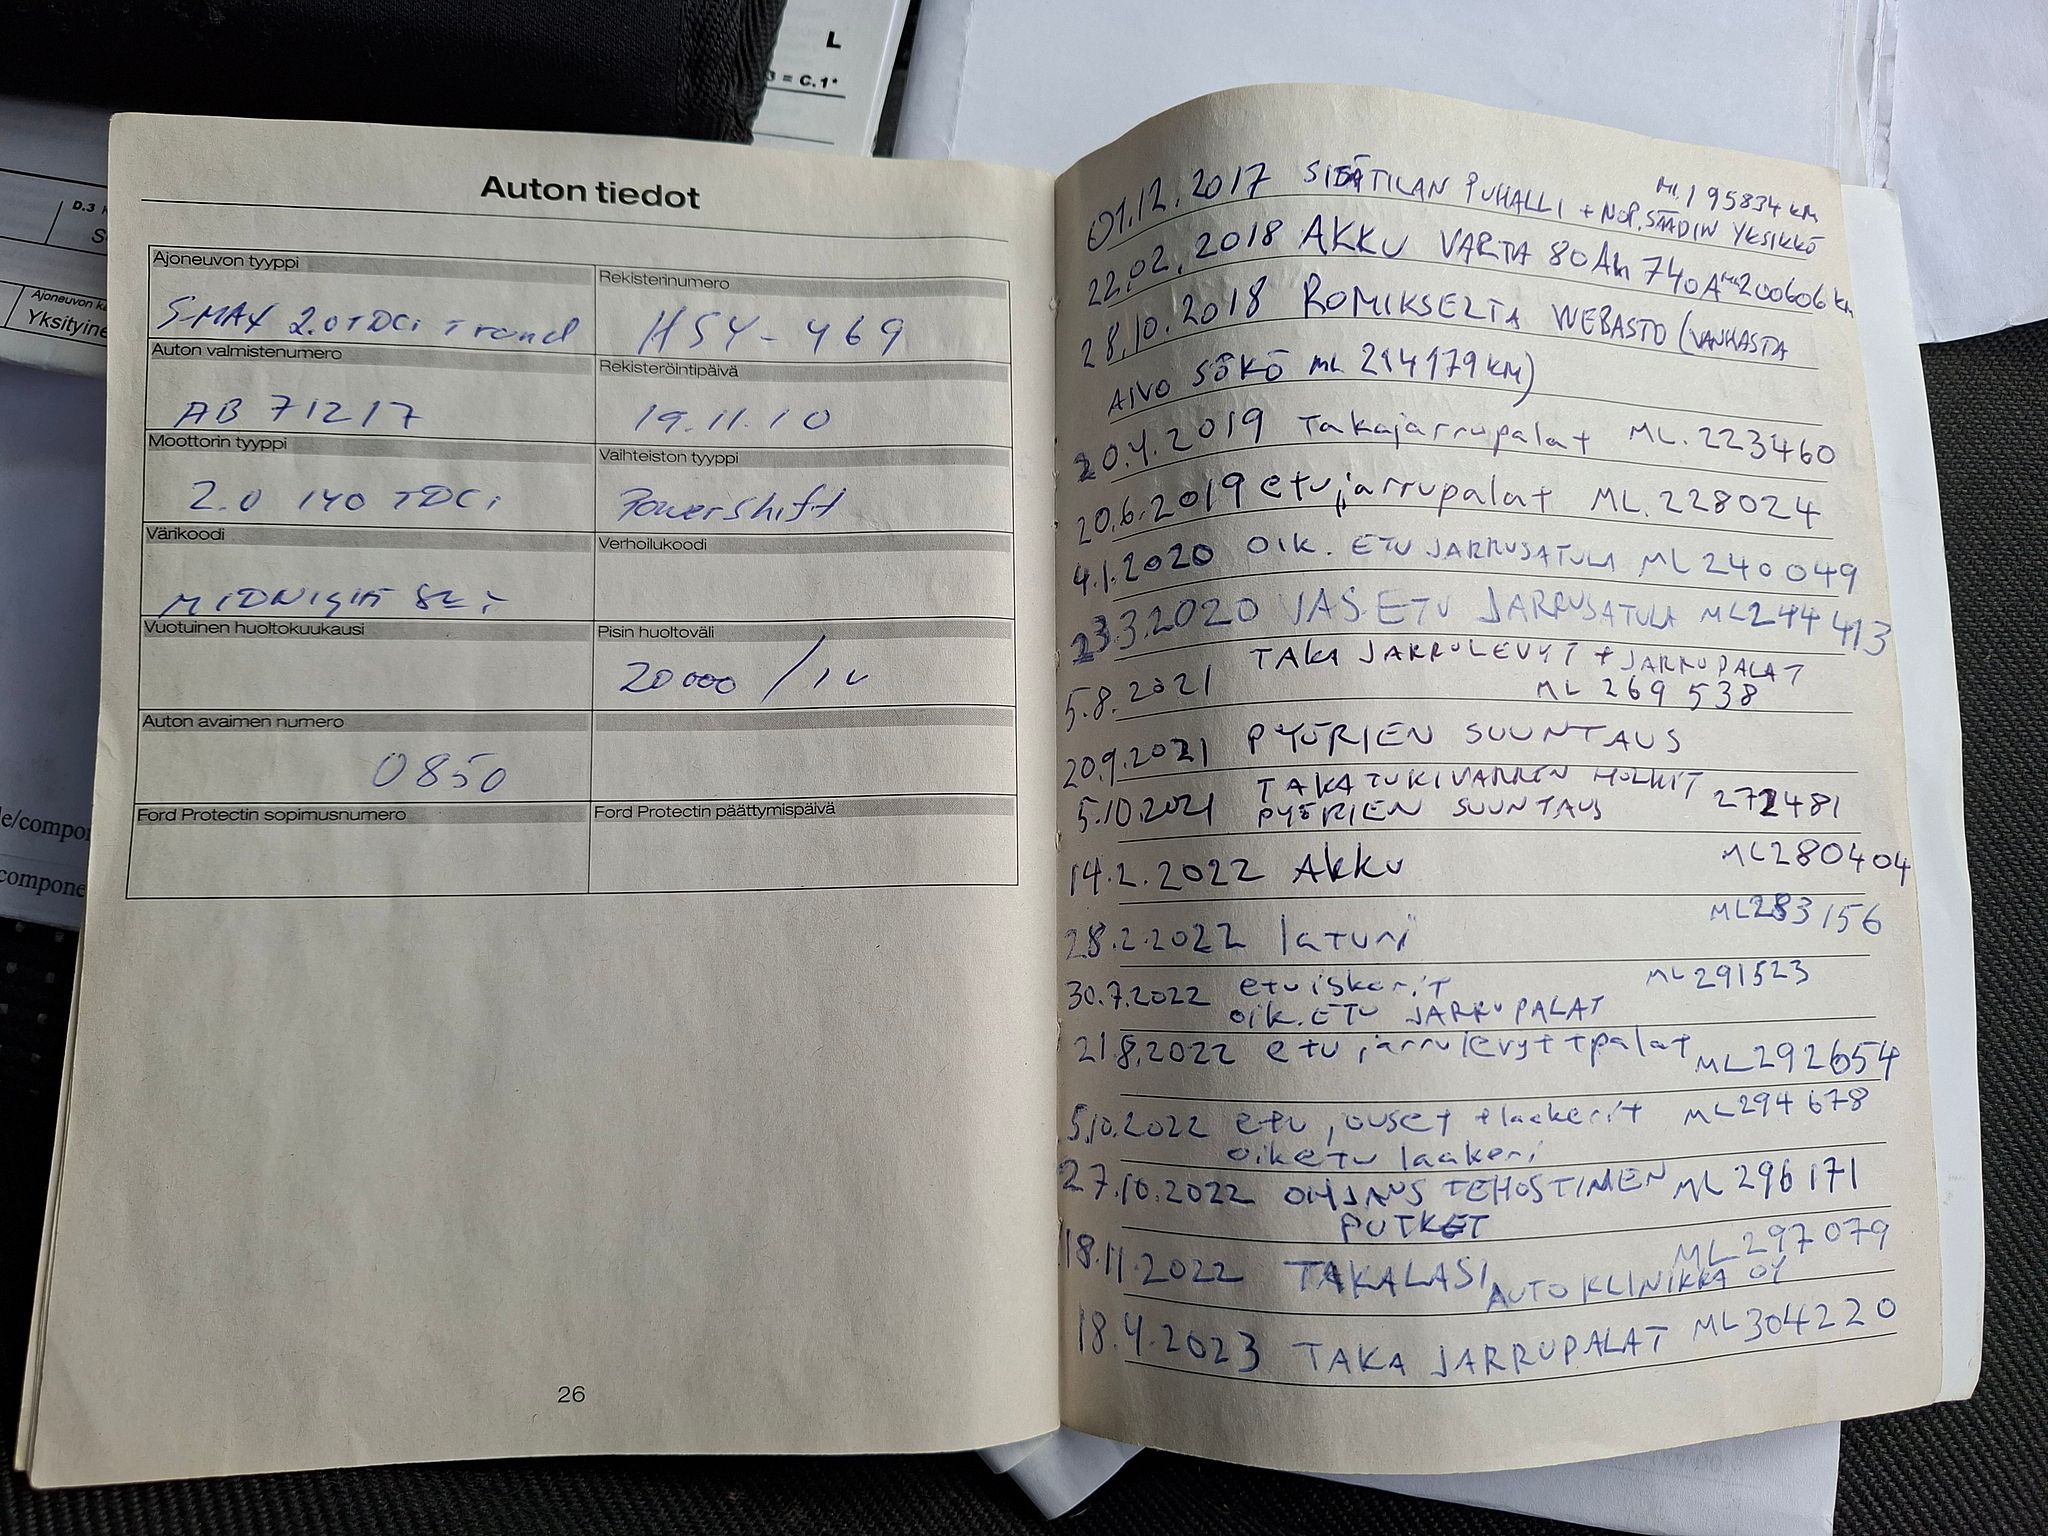 L
= C.1*
D.3
Yksityine
Auton tiedot
Ajoneuvon tyyppi
Rekisterinumero
S-MAX 2.0 TDCi Trend
HSY-469
Auton valmistenumero
Rekisteröintipäivä
AB 71217
19.11.10
Moottorin tyyppi
Vaihteiston tyyppi
2.0 140 TDCi
Powershift
Värikoodi
Verhoilukoodi
MIDNIGHT
Vuotuinen huoltokuukausi
Pisin huoltoväli
20000 / 1v
Auton avaimen numero
0850
Ford Protectin sopimusnumero
Ford Protectin päättymispäivä
26
01.12.2017 SISÄTILAN PUHALLI + NOP.SÄÄDIN YKSIKKÖ ML 195834 KM
22.02.2018 AKKU VARTA 80Ah 740A ML 200606 KM
28.10.2018 ROMIKSELTA WEBASTO (VANHASTA
AIVO SÖKÖ ML 214179 KM)
20.4.2019 Takajarrupalat ML. 223460
20.6.2019 etujarrupalat ML. 228024
4.1.2020 OIK. ETU JARRUSATULA ML 240049
23.3.2020 VAS ETU JARRUSATULA ML 244413
5.8.2021 TAKA JARRULEVYT + JARRUPALAT
ML 269 538
20.9.2021 PYÖRIEN SUUNTAUS
5.10.2021 TAKATUKIVARREN HOLKIT 272481
PYÖRIEN SUUNTAUS
14.2.2022 AKKU ML 280404
28.2.2022 laturi ML 283156
30.7.2022 etuiskarit ML 291523
OIK.ETU JARRUPALAT
21.8.2022 etujarrulevyt+palat ML 292654
5.10.2022 etujouset+laakerit ML 294678
oiketu laakeri
27.10.2022 OHJAUS TEHOSTIMEN ML 296171
PUTKET
18.11.2022 TAKALASI ML 297079
AUTOKLINIKKA OY
18.4.2023 TAKA JARRUPALAT ML 304220